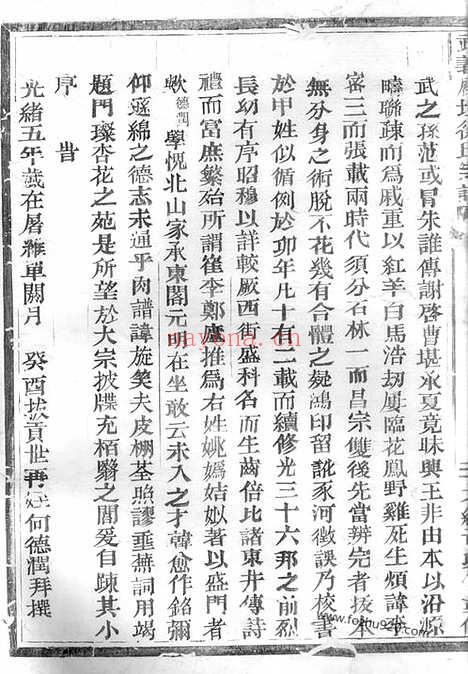 武之孫范或冒朱誰傳謝啓曹堪永夏竟昧興王非由本以沿源
疇聯疎而爲戚重以紅羊白馬浩刼屢臨花鳳野雞死生煩諱
宻三而張載兩時代須分名林一而昌宗雙後先當辨完者拔本
無分身之術脫不花幾有合體之變鴻印留訛豕河徵誤乃校書
於甲姓似循例於卯年凡十有二載而續修光三十六邦之前烈
長幼有序昭穆以詳較厥西街盛科名而生齒倍比諸東井傳詩
禮而富庶繁殆所謂崔李鄭盧推爲右姓姚嬀姞姒著以盛門者
歟德潤學愧北山家承東閣元明在坐敢云未入之才韓愈作銘彌
仰遜綿之德志未通乎肉譜諱旋笑夫皮棚荃照謬垂蕪詞用竭
題門璨杏花之苑是所望於大宗披牒充栢翳之閭爰自賕其小
序 旹
光緒五年歲在屠維單閼月 癸酉拔貢世再姪何德潤拜撰
nayona.cn
www.fozhu920.com